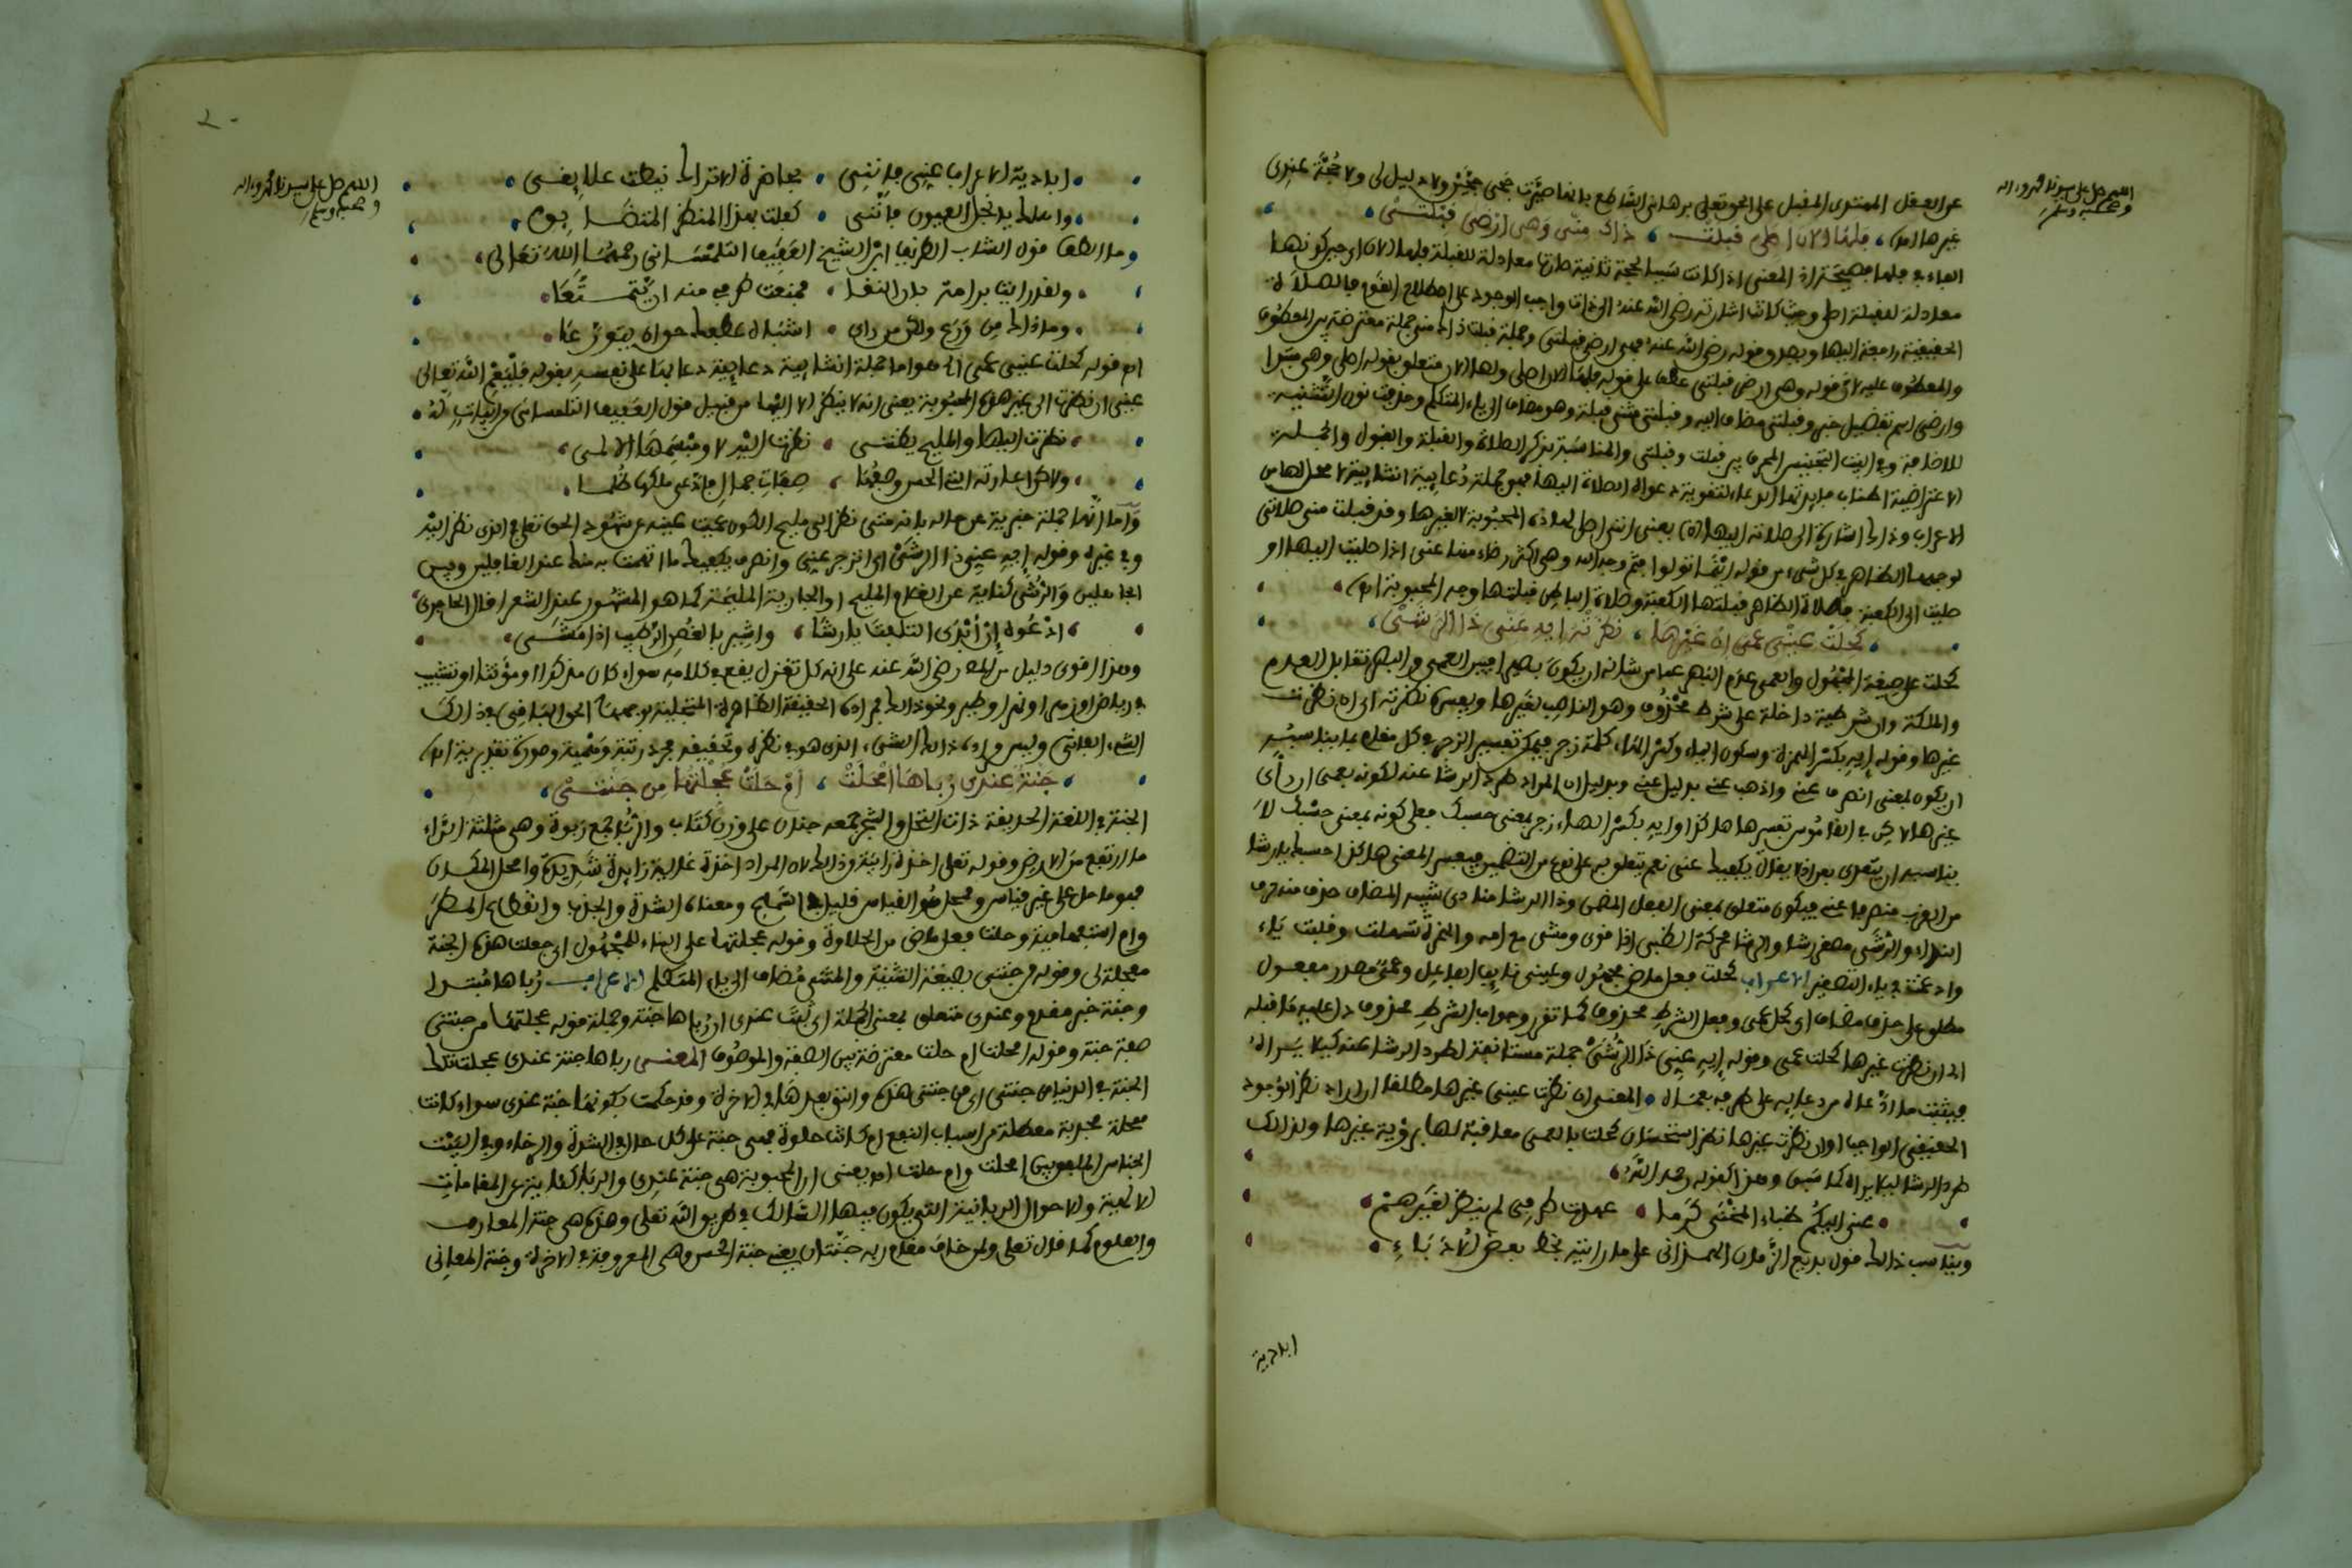 اللهم صل على سيدنا محمد وءاله
وصحبه وسلم
عن العقل المهتدى المقبل على الحق تعلى برهانى القاطع بانها صيرت حجى حجتى ولا دليل لى ولا حجة عندى
غيرها اهـ فلها الان اصلى قبلت ذاك منى وهى ارضى قبلتى
معادلة لقبلة اصلى وحيث كانت اشارته رضى الله عنه الى ذات واجب الوجود على اصطلاح القوم فالصلاة
الحقيقية راجعة اليها وبعد وقوله رضى الله عنه وهى ارضى قبلتى وجملة قبلت ذاك منى جملة معترضة بين المعطوف
والمعطوف عليه لان قوله وهى ارضى قبلتى عطف على قوله فلها الان اصلى ولها الان متعلق بقوله اصلى وهى مبتدا
وارضى اسم تفضيل خبر وقبلتى مضاف اليه وقبلتى مثنى قبلة وهو مضاف الى ياء المتكلم وحذفت نون التثنية
للاضافة وفى البيت التجنيس المحرف بين قبلت وقبلتى والمناسبة بذكر الصلاة والقبلة والقبول والجملة
الاعراب وذاك اشارة الى صلاته اليها اهـ يعنى اننى اصلى لهذه المحبوبة لا لغيرها وقد قبلت منى صلاتى
لوجهها الظاهر فى كل شىء من قوله اينما تولوا فثم وجه الله وهى اكثر رضاء منها عنى اذا صليت اليها او
صليت الى الكعبة فصلاة الظاهر قبلتها الكعبة وصلاة الباطن قبلتها وجه المحبوبة اهـ
كحلت عينى عمى ان غيرها نظرته ايه عنى ذا الرشى
كحلت على صيغة المجهول والعمى عدم البصر عما من شانه ان يكون بصيرا فبين العمى والبصر تقابل العدم
والملكة وان شرطية داخلة على شرط محذوف وهو الناصب لغيرها ويفسره نظرته اى ان نظرت
غيرها وقوله ايه بكسر الهمزة وسكون الياء وكسر الهاء كلمة زجر فيمكن تفسير الزجر فى كل مقام بما يناسبه
ان يكون بمعنى انصرف عنى واذهب عنى بدليل عنى وبدليل ان المراد طرد الرشا عنه لكونه بمعنى ان راى
غيرها لا كن فى القاموس تفسيرها هاكذا وايه بكسر الهاء زجر بمعنى حسبك فعلى كونه بمعنى حسبك لا
يناسبه ان يتعدى بعن اذ لا يقال يكفيك عنى نعم يتعلق به على نوع من التضمين فيصير المعنى هاكذا حسبك يا رشا
من القرب منصرفا عنى فيكون متعلق بمعنى الفعل المضمن وذا الرشا منادى شبيه المضاف حذف منه حرف
النداء والرشى مصغر رشا والرشا محركة الظبى اذا قوى ومشى مع امه والهمزة تسهلت وقلبت ياء
وادغمت فى ياء التصغير الاعراب كحلت فعل ماض مجهول وعينى نايب الفاعل وعمى مصدر مفعول
مطلق على حذف مضاف اى كحل عمى وفعل الشرط محذوف كما تقرر وجواب الشرط محذوف دل عليه ما قبله
اى ان نظرت غيرها كحلت عمى وقوله ايه عنى ذا الرشى جملة مستانفة لطرد الرشا عنه كيلا يراه
فيثبت ما ادعاه من دعايه على طرفه بعماه المعنى ان نظرت عينى غيرها مطلقا ان اراد نظر الوجود
الحقيقى الواجب او ان نظرت غيرها نظر استحسان كحلت بالعمى معاقبة لها برؤية غيرها ولذالك
طرد الرشا ليلا يراه كما سبق وهذا كقوله رحمه الله
عنى اليكم ظباء المنحنى كرما عهدت طرفى لم ينظر لغيرهم
ويناسب ذالك قول بديع الزمان الهمذانى على ما رايته بخط بعض الادباء
ابادية
اللهم صل على سيدنا محمد وءاله
وصحبه وسلم
ابادية الاعراب عنى فاننى بحاضرة الاتراك نيطت علايقى
واهلك يا نجل العيون فاننى كلفت بهذا المنظر المتضايق
وما الطف قول الشاب الظريف ابن الشيخ العفيف التلمسانى رحمهما الله تعالى
ولقد رايت برامة بان النقا فمنعت طرفى منه ان يتمتعا
وما ذاك من ورع ولكن من راى اشباه عطفك حق ان يتورعا
ام قوله كحلت عينى عمى الخ فهو اما جملة انشايية دعايية دعا بها على نفسه بقوله فليعم الله تعالى
عينى ان نظرت الى غير هذه المحبوبة يعنى انه لا ينظر الا اليها من قبيل قول العفيف التلمسانى من ابيات له
نظرت اليها والمليح يظننى نظرت اليه لا ومبسمها الالمى
ولاكن اعارته التى الحسن وصفها صفات جمال فادعى ملكها ظلما
واما انها جملة خبرية عن حاله بانه متى نظر الى مليح الكون عميت عينه عن شهود الحق تعلى الذى نظر اليه
وفى غيره وقوله ايه عنى ذا الرشى اى انزجر عنى وانصرف يكفيك ما اتهمت به منك عند الغافلين وبين
الجاهلين والرشى كناية عن الغلام المليح او الجارية المليحة كما هو المشهور عند الشعراء قال الحاجرى
ادعوه اذ ابدى التلفت يا رشا واشير بالغصن الرطيب اذا مشى
وهذا اقوى دليل من الله رضى الله عنه على انه كل تغزل يقع فى كلامه سواء كان مذكرا او مؤنثا او تشبيب
فى رياض او زهر او نهر او طير ونحو ذالك فمراده الحقيقة الظاهرة المتجلية بوجهها الحق الباقى فى ذالك
الشىء الفانى وليس مراده ذالك الشىء الذى هو فى نظره وتحقيقه مجرد رتبة وهمية وصورة تقديرية اهـ
جنة عندى رباها امحلت ام حلت عجلتها من جنتى
الجنة فى اللغة الحديقة ذات النخل والشجر جمعه جنان على وزن كتاب والربا جمع ربوة وهى مثلثة الراء
ما ارتفع من الارض وقوله تعلى اخذة رابية وذالك لان المراد اخذة غالبة زايدة شديدة وامحل المكان
فهو ماحل على غير قياس وممحل هو القياس قليل فى السماع ومعناه الشدة والجدب وانقطاع المطر
وام استفهامية وحلت فعل ماض من الحلاوة وقوله عجلتها على البناء للمجهول اى جعلت هذه الجنة
معجلة لى وقوله من جنتى بصيغة التثنية والمثنى مضاف الى ياء المتكلم الاعراب رباها مبتدا
وجنة خبر مقدم وعندى متعلق بمعنى الجملة اى ثبت عندى ان رباها جنة وجملة قوله عجلتها من جنتى
صفة جنة وقوله امحلت ام حلت معترضة بين الصفة والموصوف المعنى رباها جنة عندى عجلت تلك
الجنة فى الدنيا من جنتى اى من جنتى هذه والتى بعدها فى الاخرة وقد حكمت بكونها جنة عندى سواء كانت
ممحلة مجدبة معطلة من اسباب النفع ام كانت حلوة فهى جنة على كل حال فى الشدة والرخاء وفى البيت
الجناس المقلوب بين امحلت وام حلت اهـ يعنى ان المحبوبة هى جنة عندى والربا كناية عن المقامات
الالهية والاحوال الربانية التى يكون فيها السالك فى طريق الله تعلى وهذه هى جنة المعارف
والعلوم كما قال تعلى ولمن خاف مقام ربه جنتان يعنى جنة الحس وهى المعروفة فى الاخرة وجنة المعانى